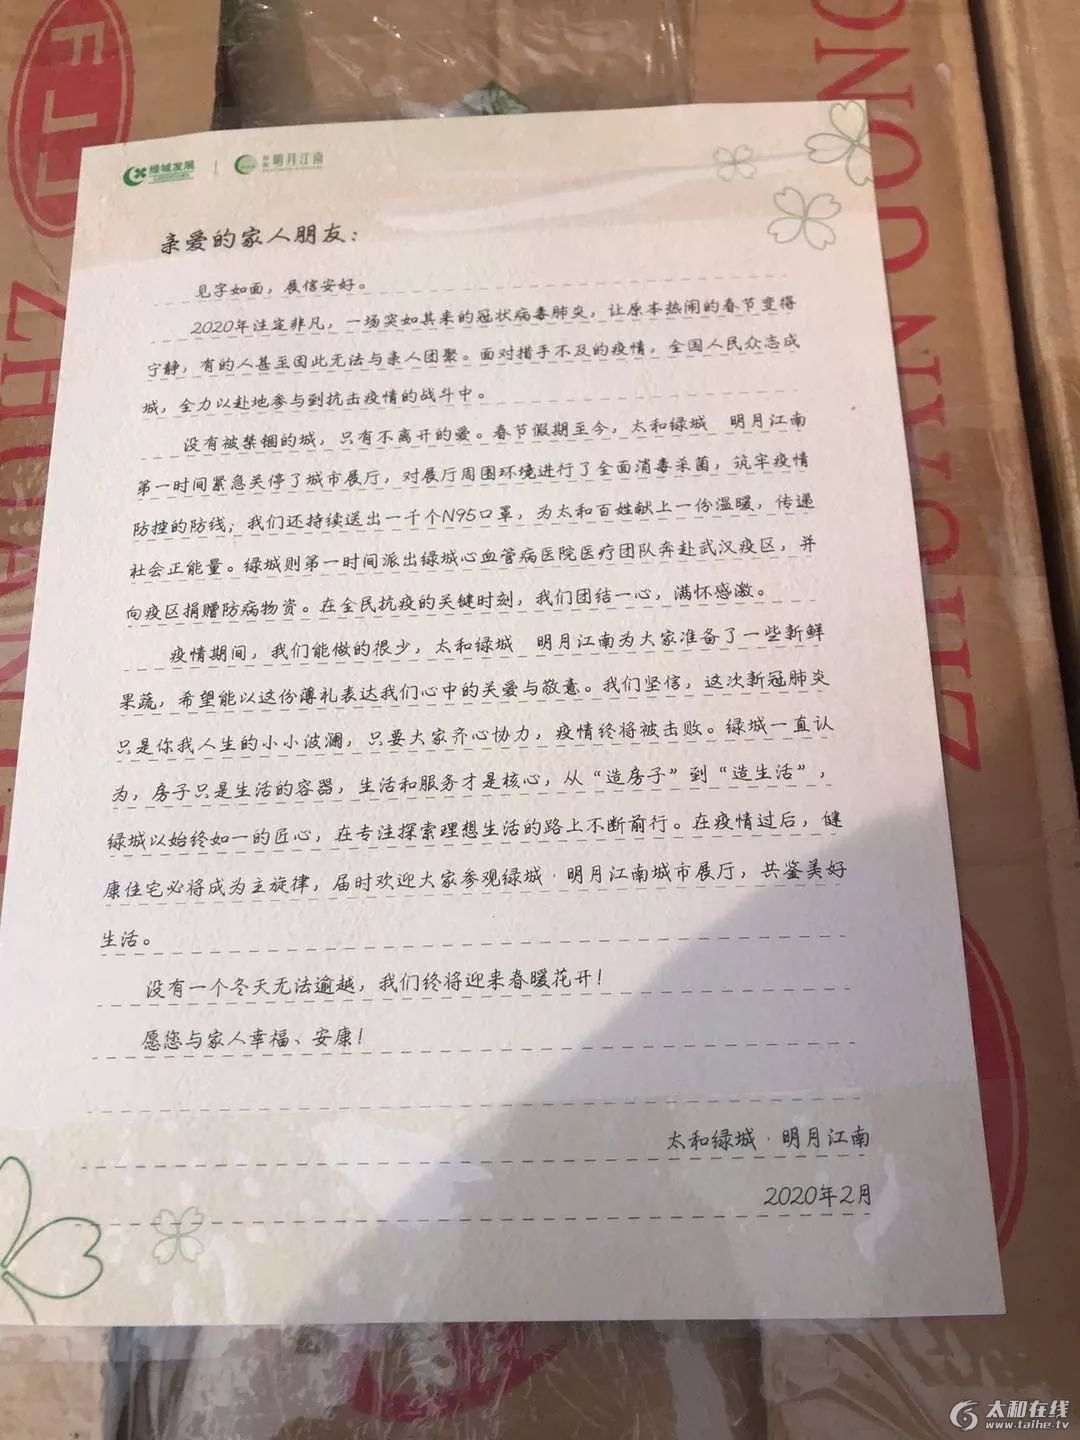 FJJ
ZHUAN
绿城发展
绿城 明月江南
亲爱的家人朋友：
见字如面，展信安好。
2020年注定非凡，一场突如其来的冠状病毒肺炎，让原本热闹的春节变得
宁静，有的人甚至因此无法与亲人团聚。面对措手不及的疫情，全国人民众志成
城，全力以赴地参与到抗击疫情的战斗中。
没有被禁锢的城，只有不离开的爱。春节假期至今，太和绿城 明月江南
第一时间紧急关停了城市展厅，对展厅周围环境进行了全面消毒杀菌，筑牢疫情
防控的防线；我们还持续送出一千个N95口罩，为太和百姓献上一份温暖，传递
社会正能量。绿城则第一时间派出绿城心血管病医院医疗团队奔赴武汉疫区，并
向疫区捐赠防病物资。在全民抗疫的关键时刻，我们团结一心，满怀感激。
疫情期间，我们能做的很少，太和绿城 明月江南为大家准备了一些新鲜
果蔬，希望能以这份薄礼表达我们心中的关爱与敬意。我们坚信，这次新冠肺炎
只是你我人生的小小波澜，只要大家齐心协力，疫情终将被击败。绿城一直认
为，房子只是生活的容器，生活和服务才是核心，从“造房子”到“造生活”，
绿城以始终如一的匠心，在专注探索理想生活的路上不断前行。在疫情过后，健
康住宅必将成为主旋律，届时欢迎大家参观绿城·明月江南城市展厅，共鉴美好
生活。
没有一个冬天无法逾越，我们终将迎来春暖花开！
愿您与家人幸福、安康！
太和绿城·明月江南
2020年2月
太和在线
www.taihe.tv